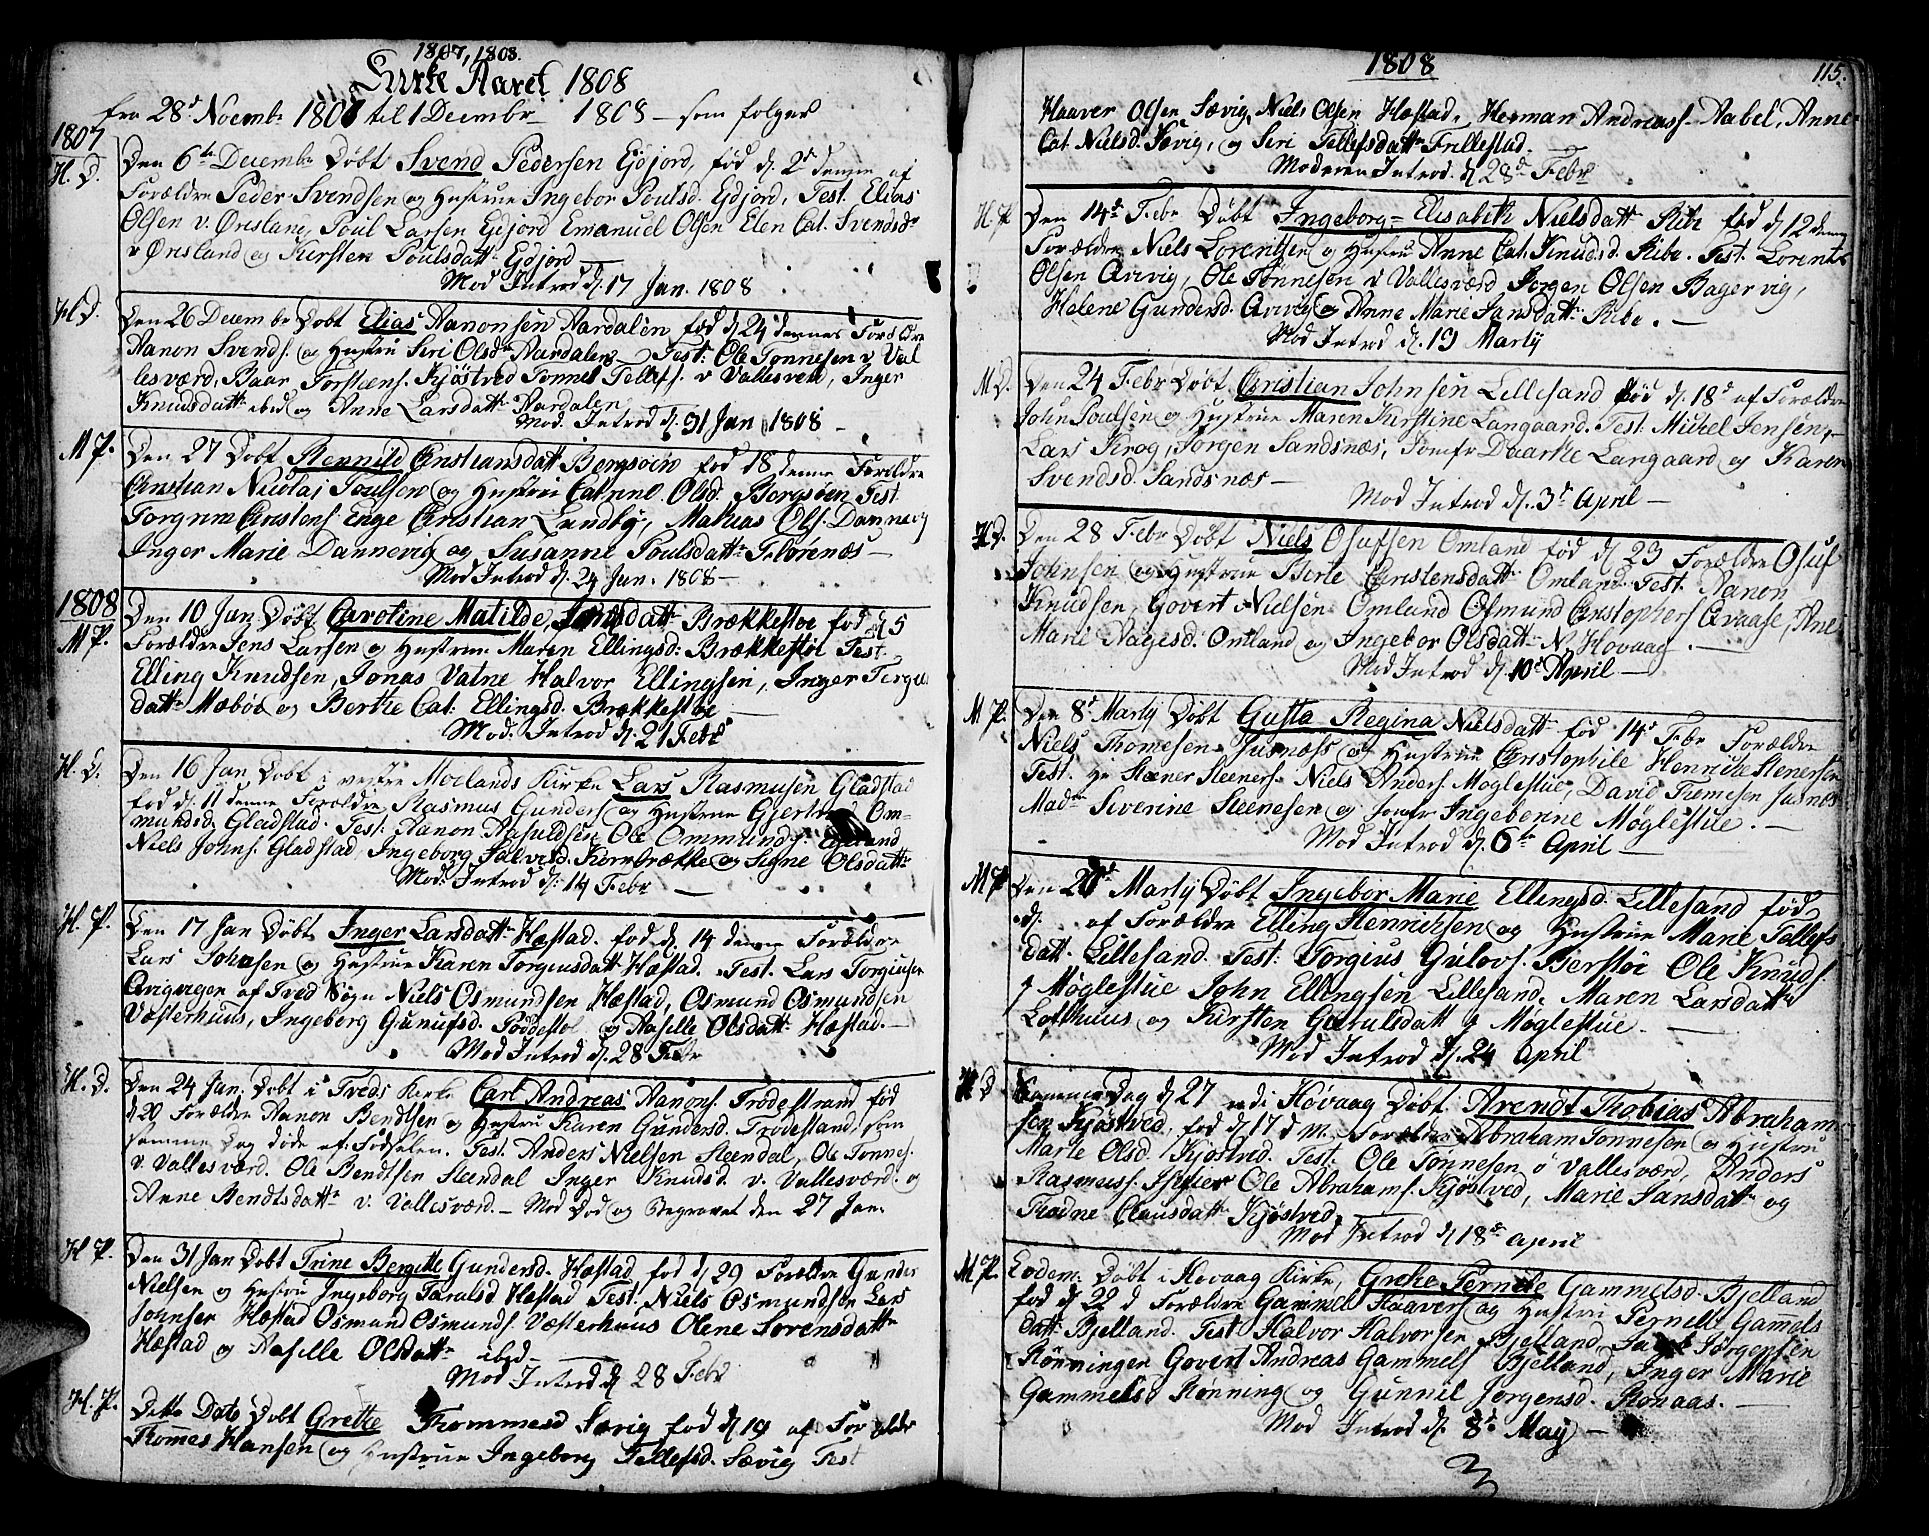 1807, 1808.
Kirke Aaret 1808
fra 28d Novembr 1807 til 1 Decembr 1808 – som følger
1807
H. D. Den 6te Decembr Døbt Svend Pedersen Eidjord, fød d. 2d denne af
Forældre Peder Svendsen og Hustrue Ingebor Poulsd. Eidjord, Test. Elias
Olsen v. Ørsland, Poul Larsen Eidjord Emanuel Olsen Elen Cat. Svendsdr
v Ørsland og Kirsten Poulsdattr Eidjord
Mod Introd d. 17 Jan. 1808
H. D. Den 26 Decembr Døbt Elias Aanonsen Aardalen fød d. 24 dennes Forældre
Aanon Svends. og Hustru Siri Olsdr Aardalen – Test: Ole Tønnesen v. Val
lesværd, Baar Torstens. Kjøstved Tønnes Tellefs. v Vallesverd, Inger
Knudsdattr ibid og Anne Larsdattr Aardalen
Mod. Introd d. 31 Jan 1808 –
M. P. Den 27 Døbt Rennild Christiansdatt Borgsøen fød 18 denne Forældre
Christian Nicolai Poulsen og Hustrue Catrine Olsd. Borgsøen Test
Torgrim Christens. Enge Christian Lundby, Mathias Ols. Dannevig
Inger Marie Dannevig og Susanne Poulsdattr Florenæs –
Mod Introd d. 24 Jan. 1808 –
1808
M. P. Den 10 Jan Døbt Caroline Matilde, Jensdatt Brækkestøe fød d 5
Forældre Jens Larsen og Hustrue Maren Ellingsd: Brækkestøe Test
Elling Knudsen, Jonas Vatne Halvor Ellingsen, Inger Torgius
dattr Mæbøe og Berthe Cat: Ellingsd. Brækkestøe
Mod. Introd d. 21 Febr
H. D. Den 16 Jan Døbt i vestre Molands Kirke Lars Rasmusen Gladstad
fød d. 11 denne Forældre Rasmus Gunders og Hustrue Gjertrud Om-
mundsd. Gladstad. Test: Aanon Aasuldsen Ole Ommunds.
Niels Johns. Gladstad, Ingeborg Salvesd. Kornbrække og Signe Olsdattr
Mod: Introd d: 14 Febr –
H. P. Den 17 Jan Døbt Inger Larsdattr Hæstad. fød d. 14 denne Forældre
Lars Johnsen og Hustrue Karen Torgiusdatt Hæstad. Test. Lars Torgiusen
af Tved Sogn Niels Osmundsen Hæstad, Osmund Osmundsen
Væsterhuus, Ingeborg Gunufsd. Poddestøl og Aasille Olsdatt. Hæstad. –
Mod Introd d. 28 Febr
H. D. Den 24 Jan. Døbt i Tveds Kirke Carl Andreas Aanons. Trødestrand fød
d 20 Forældre Aanon Bendtsen og Hustru Karen Gundersd. Trødestrand, som
samme Dag døde af Fødselen. Test. Anders Nielsen Steendal, Ole Tønnes.
v. Vallesværd. Ole Bendtsen Steendal Inger Knudsd. v. Vallesværd. og
Anne Bendtsdattr v. Vallesværd. – Mod Død og Begravet den 27 Jan.
H. P. Den 31 Jan Døbt Trine Bergitte Gundersd. Hæstad fød d 29 Forældre Gunder
Nielsen og Hustru Ingeborg Taralsd Hæstad Test. Niels Osmundsøn Lars
Johnsen Hæstad Osmund Osmunds. Væsterhuus Olene Sørensdattr
Hæstad og Aasille Olsdattr ibid –
Mod Introd d 28 Febr
H. P. Dette Dato Døbt Grethe Thommesd Sævig fød d 19 af Forældre
Thomes Hansen og Hustrue Ingeborg Tellefsd. Sævig Test
1808
115.
Haaver Olsen Sævig, Niels Olsen Hæstad, Herman Andreass. Aabel, Anne
Cat. Nielsd. Sævig, og Siri Tellefsdattr Frillestad.
Moderen Introd. d. 28d Febr
H. P. Den 14d Febr Døbt Ingeborg = Elisabeth Nielsdattr Ribe fød d 12 denne
Forældre Niels Lorentsen og Hustru Anne Cat. Knudsd. Ribe. Test. Lorents
Olsen Qvivig, Ole Tønnesen v Vallesværd Jørgen Olsen Bagervig,
Helene Gundersd. Qvivig og Anne Marie Jansdattr Ribe. –
Mod Introd d. 13 Martij
M. D. Den 24 Febr Døbt Christian Johnsen Lillesand fød d. 18d af Forældre
John Poulsen og Hustrue Maren Kirstine Langaard. Test: Mickel Jensen,
Lars Krog, Jørgen Sandsnæs, Jomfr Daarthe Langaard og Karen
Svendsd. Sandsnæs –
Mod Introd d. 3d April –
H. D. Den 28 Febr Døbt Niels Osufsen Omland fød d 23 Forældre Osuf
Johnsen og Hustrue Berte Christensdattr Omland. Test. Aanon
Knudsen, Govert Nielsen Omland Osmund Christophers Qvaase, Ane
Marie Aagesd. Omland og Ingebor Olsdattr N. Hovaag. –
Mod Introd d. 10d April –
M. P. Den 8d Martij Døbt Gusta Regina Nielsdattr fød 14d Febr Forældre
Niels Thomesen Justnæss og Hustrue Christophile Henricke Stenersen
Test. Hr Steener Steeners. Niels Anders. Møglestue, David Thomesen Justnæs
Madm Severine Steenesen og Jomfr Ingeborne Møglestue. –
Mod Introd d. 6te April –
M. P. Den 20d Martij Døbt Ingebor Marie Ellingsd. Lillesand fød
d. af Forældre Elling Henrichsen og Hustrue Marie Tellefs
datt. Lillesand. Test: Torgius Gulovs. Berstøe Ole Knuds.
y Møglestue John Ellingsen Lillesand. Maren Larsdattr
Lofthuus og Kirsten Garulsdatt y Møglestue. –
Mod Introd d. 24 April
H. D Samme Dag d 27 udi Høvaag Døbt Arendt Thobias Abraham-
sen Kjøstved, fød d. 17 d M. Forældre Abraham Tønnesen og Hustru
Marte Olsd. Kjøstved. Test. Ole Tønnesen v Vallesværd, Anders
Rasmuss. Ole Abrahams. Kjøstved, Marie Jansdattr og
Thodne Clausdattr Kjøstved.
Mod Introd d. 18d April
M. P. Eodem Døbt i Hovaag Kirke, Grethe Pernille Gammelsd. Bjelland
fød d 22 d Forældre Gammel Haavers og Hustru Pernille Gamels
datt. Bjelland. Test Halvor Halvorsen Bjelland, Jørgensen
Rønningen Govert Andreas Gammels Bjelland, Inger Marie
Gammelsd Rønning og Gunnil Jørgensd. Ronaas. –
Mod Introd d. 8d May –